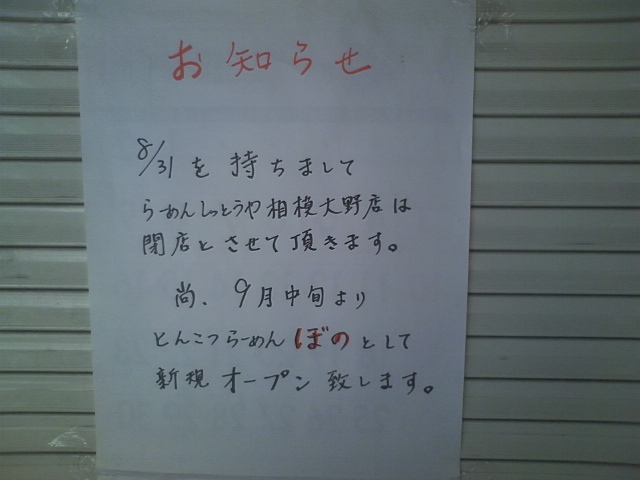 お知らせ
8/31を持ちまして
らーめんしっとうや相模大野店は
閉店とさせて頂きます。
尚、9月中旬より
とんこつらーめんぼのとして
新規オープン致します。